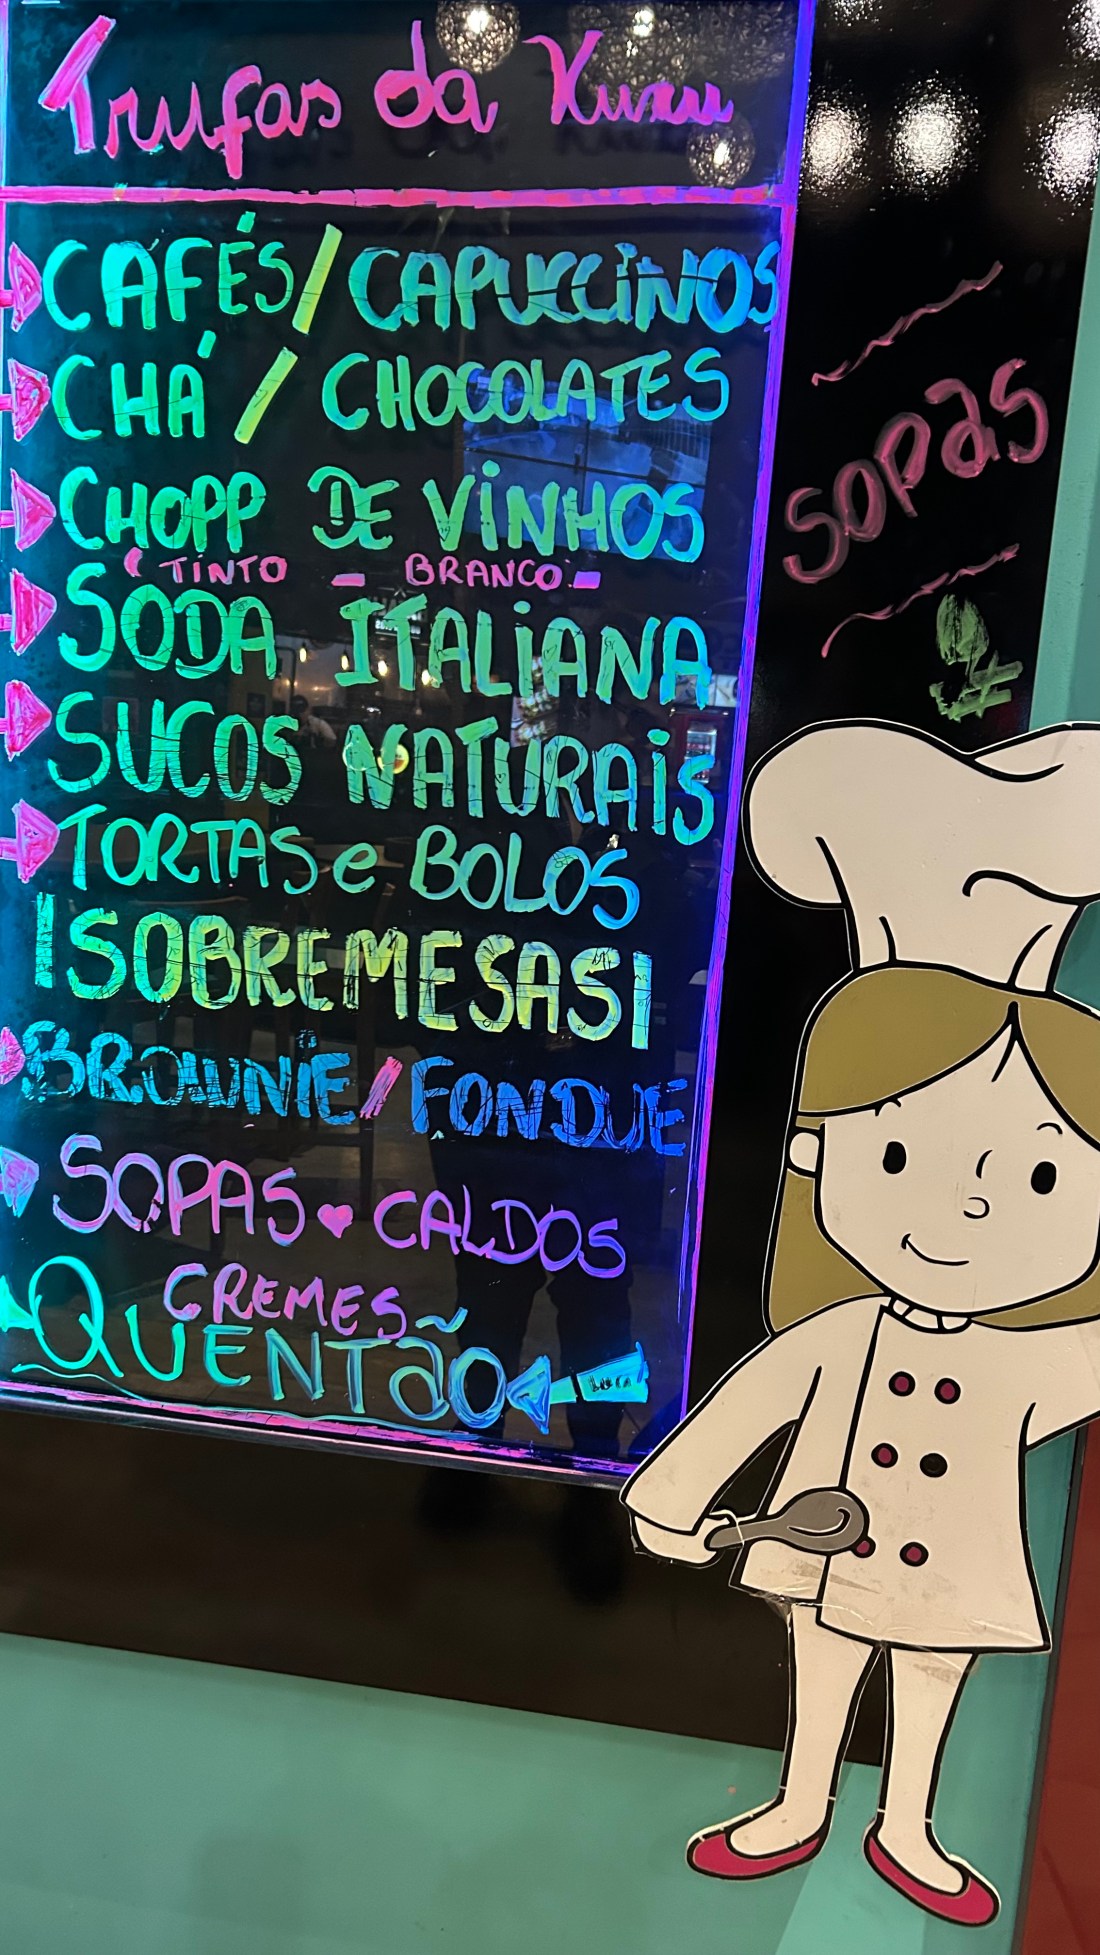 Trufas da Kuru
CAFÉS / CAPUCCINOS
CHÁ / CHOCOLATES
CHOPP DE VINHOS
TINTO - BRANCO -
SODA ITALIANA
SUCOS NATURAIS
TORTAS e BOLOS
SOBREMESAS
BROWNIE / FONDUE
SOPAS ♥ CALDOS
CREMES
QUENTÃO
SOPAS